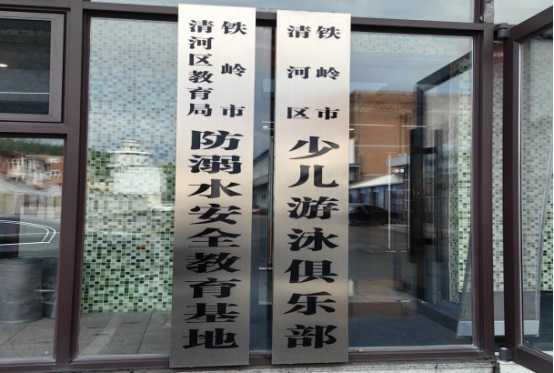 铁岭市
清河区教育局
防溺水安全教育基地
铁岭市
清河区
少儿游泳俱乐部